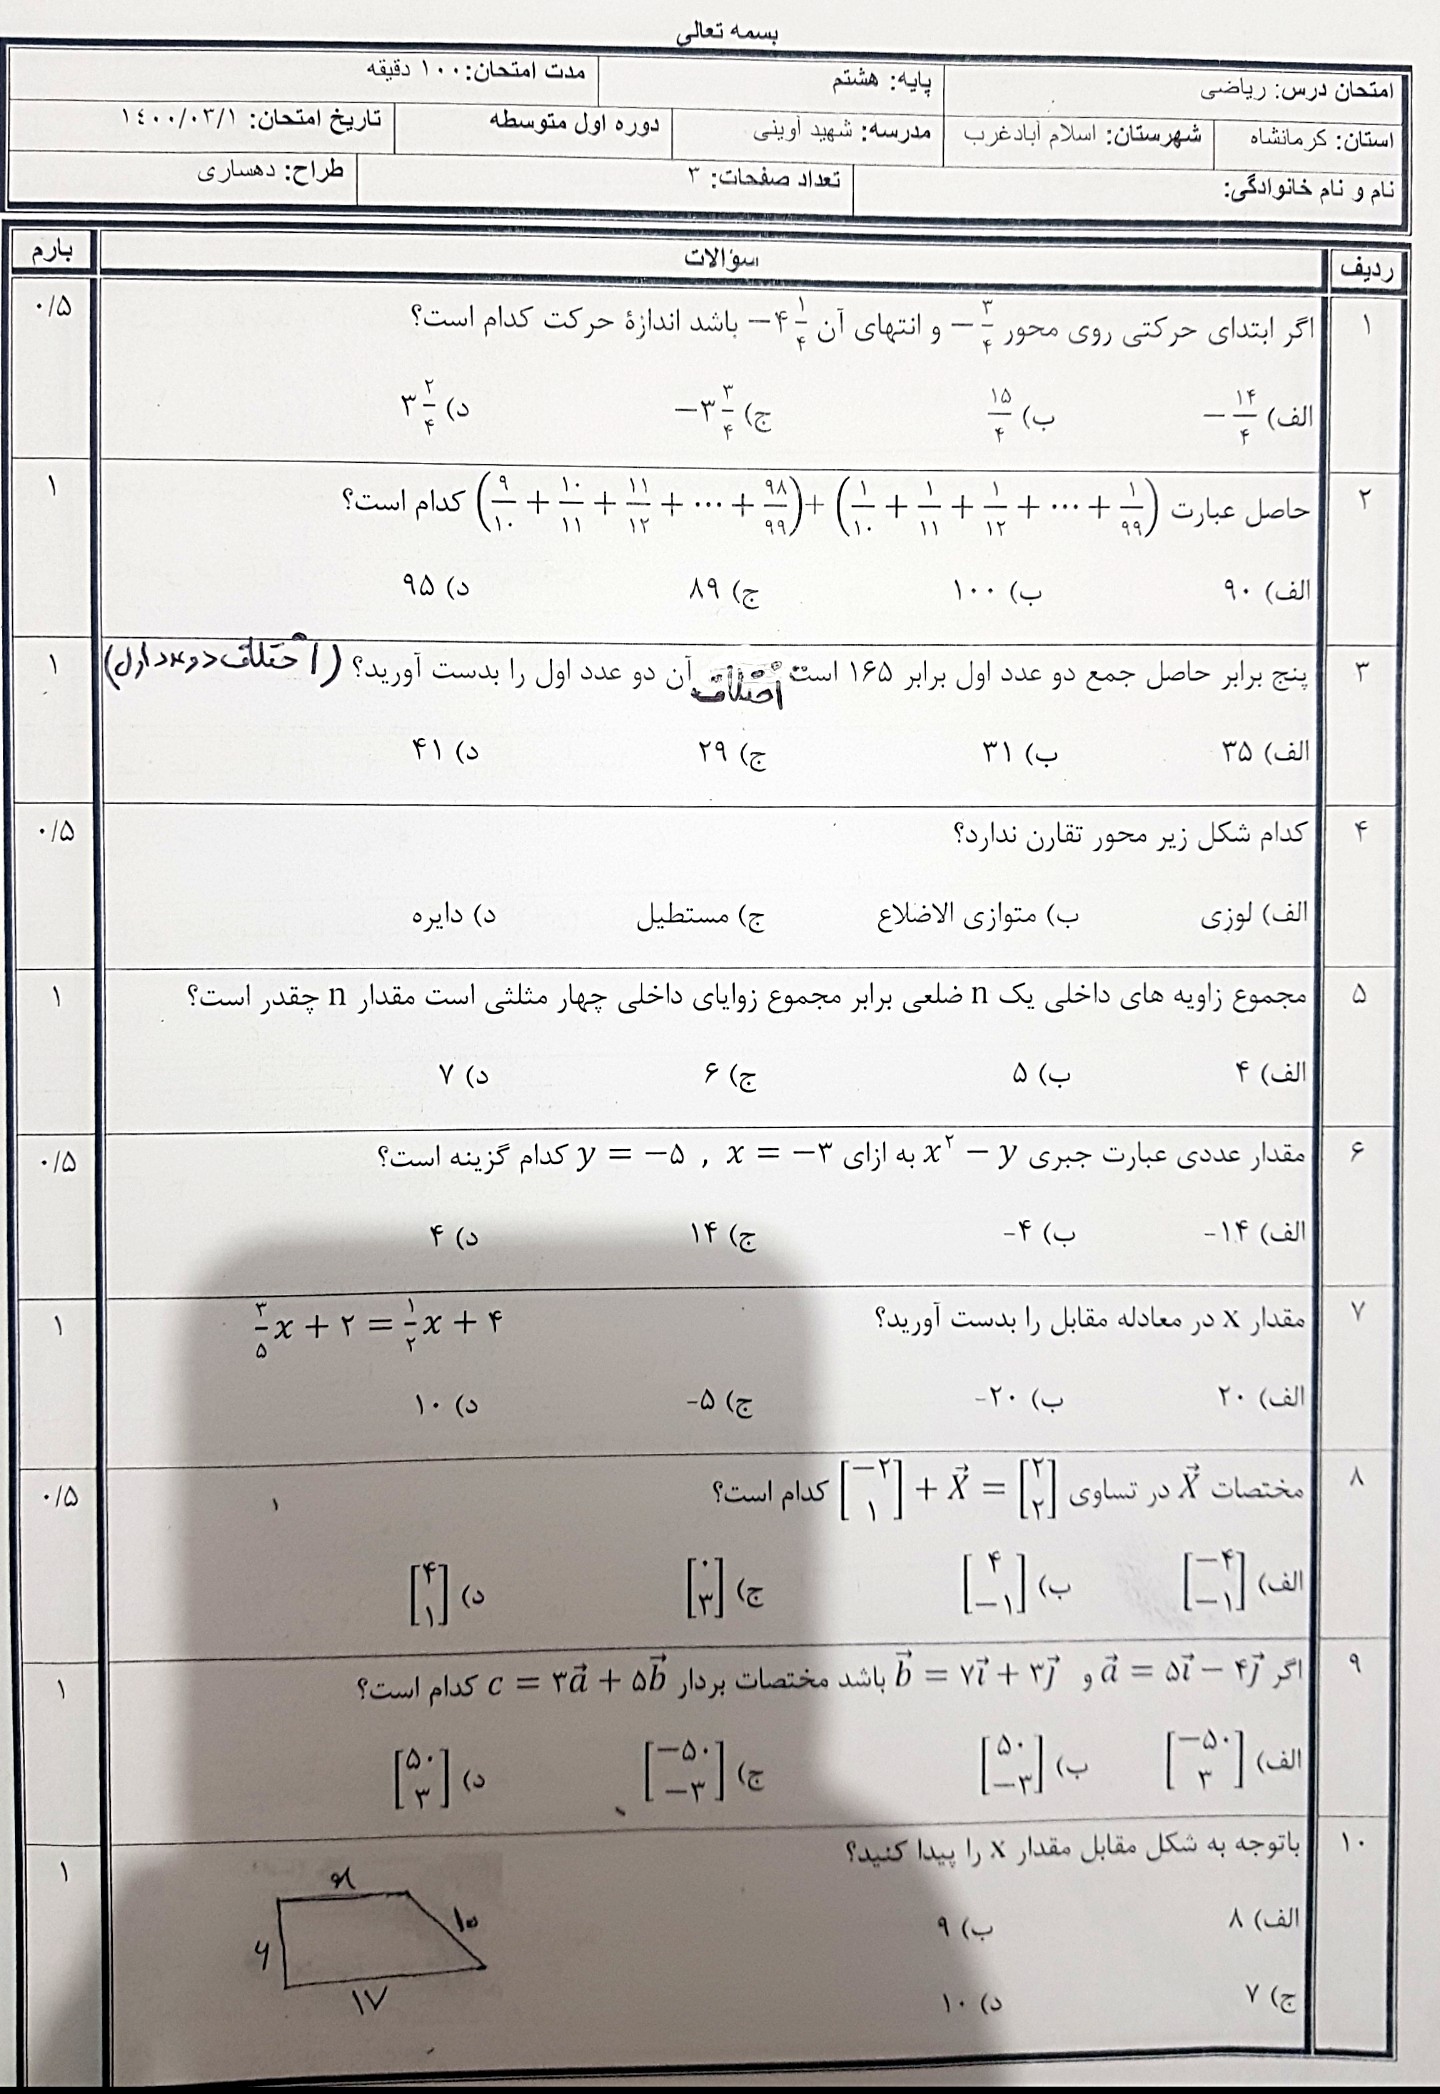 بسمه تعالی
امتحان درس: ریاضی پایه: هشتم مدت امتحان: ۱۰۰ دقیقه
استان: کرمانشاه شهرستان: اسلام آبادغرب مدرسه: شهید آوینی دوره اول متوسطه تاریخ امتحان: ۱٤۰۰/۰۳/۱
نام و نام خانوادگی: تعداد صفحات: ۳ طراح: دهساری
ردیف سؤالات بارم
۱ اگر ابتدای حرکتی روی محور −۳/۴ و انتهای آن −۴ ۱/۴ باشد اندازهٔ حرکت کدام است؟ ۰/۵
الف) −۱۴/۴ ب) ۱۵/۴ ج) −۳ ۳/۴ د) ۳ ۲/۴
۲ حاصل عبارت (۹/۱۰ + ۱۰/۱۱ + ۱۱/۱۲ + ⋯ + ۹۸/۹۹) + (۱/۱۰ + ۱/۱۱ + ۱/۱۲ + ⋯ + ۱/۹۹) کدام است؟ ۱
الف) ۹۰ ب) ۱۰۰ ج) ۸۹ د) ۹۵
۳ پنج برابر حاصل جمع دو عدد اول برابر ۱۶۵ است اختلاف آن دو عدد اول را بدست آورید؟ (اختلاف دو عدد اول) ۱
الف) ۳۵ ب) ۳۱ ج) ۲۹ د) ۴۱
۴ کدام شکل زیر محور تقارن ندارد؟ ۰/۵
الف) لوزی ب) متوازی الاضلاع ج) مستطیل د) دایره
۵ مجموع زاویه های داخلی یک n ضلعی برابر مجموع زوایای داخلی چهار مثلثی است مقدار n چقدر است؟ ۱
الف) ۴ ب) ۵ ج) ۶ د) ۷
۶ مقدار عددی عبارت جبری x² − y به ازای y = −۵ , x = −۳ کدام گزینه است؟ ۰/۵
الف) ۱۴- ب) ۴- ج) ۱۴ د) ۴
۷ مقدار x در معادله مقابل را بدست آورید؟ ۳/۵x + ۲ = ۱/۲x + ۴ ۱
الف) ۲۰ ب) ۲۰- ج) ۵- د) ۱۰
۸ مختصات X⃗ در تساوی [−۲ ۱] + X⃗ = [۲ ۲] کدام است؟ ۰/۵
الف) [−۴ −۱] ب) [۴ −۱] ج) [۰ ۳] د) [۴ ۱]
۹ اگر a⃗ = ۵i⃗ − ۴j⃗ و b⃗ = ۷i⃗ + ۳j⃗ باشد مختصات بردار c = ۳a⃗ + ۵b⃗ کدام است؟ ۱
الف) [−۵۰ ۳] ب) [۵۰ −۳] ج) [−۵۰ −۳] د) [۵۰ ۳]
۱۰ باتوجه به شکل مقابل مقدار x را پیدا کنید؟ ۱
x
الف) ۸ ب) ۹ ۱۰
۶
ج) ۷ د) ۱۰ ۱۷